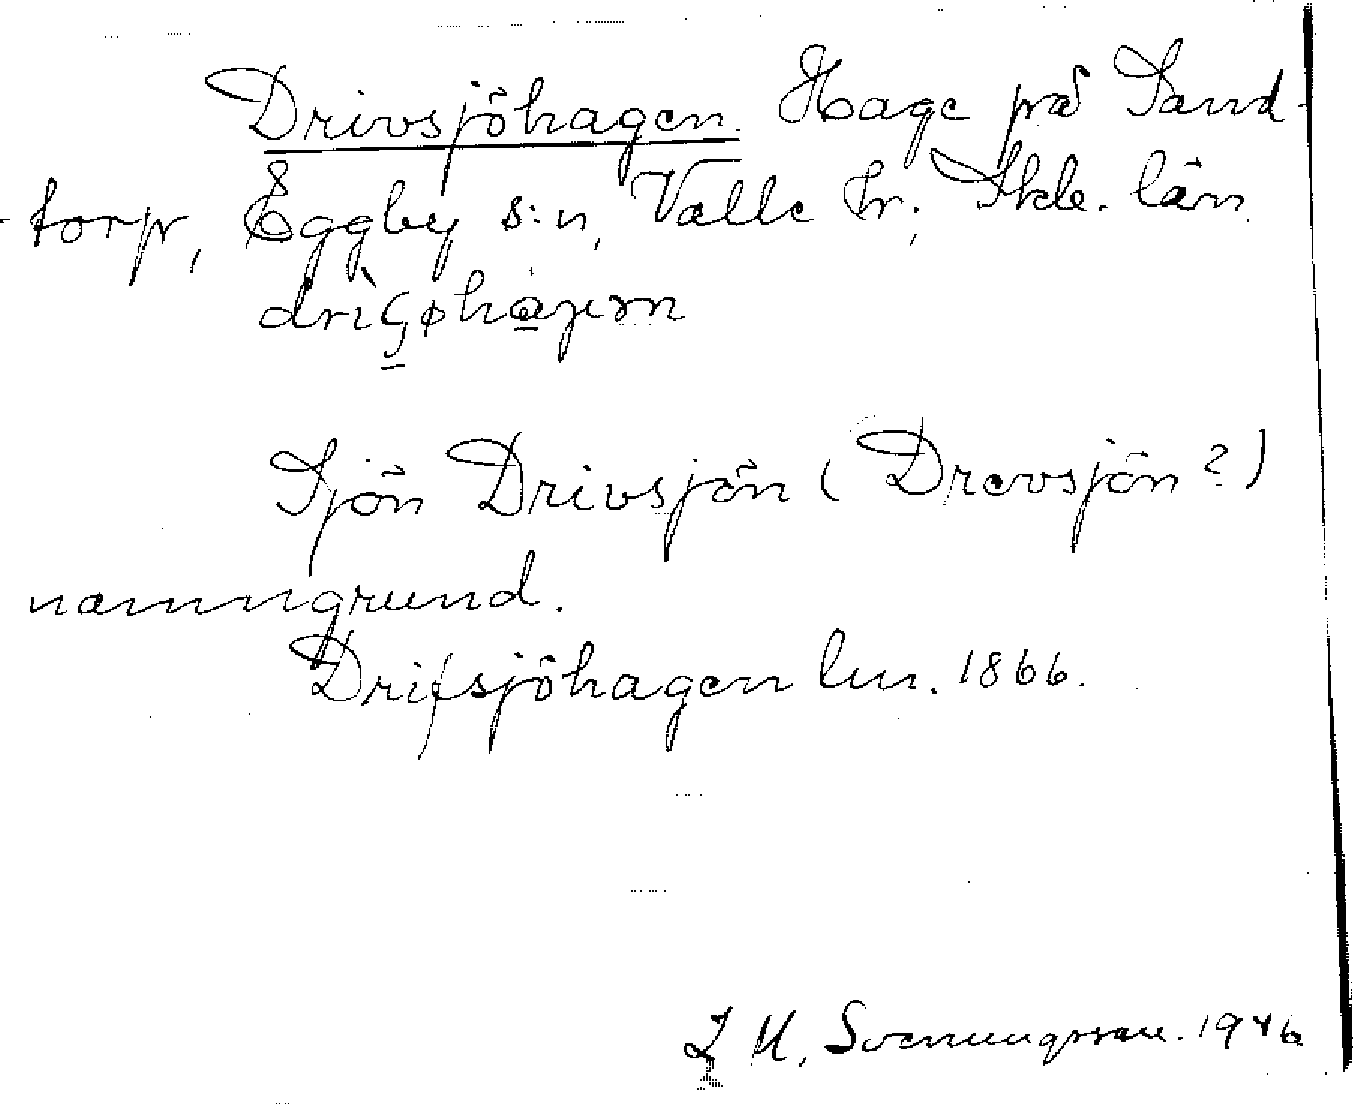 Drivsjöhagen. Hage på Sand-
torp, Eggby s:n, Valle hr; Skb. län.
Sjön Drivsjön (Drevsjön?)
namngrund.
Drifsjöhagen lm. 1866.
Svenungsson. 1946